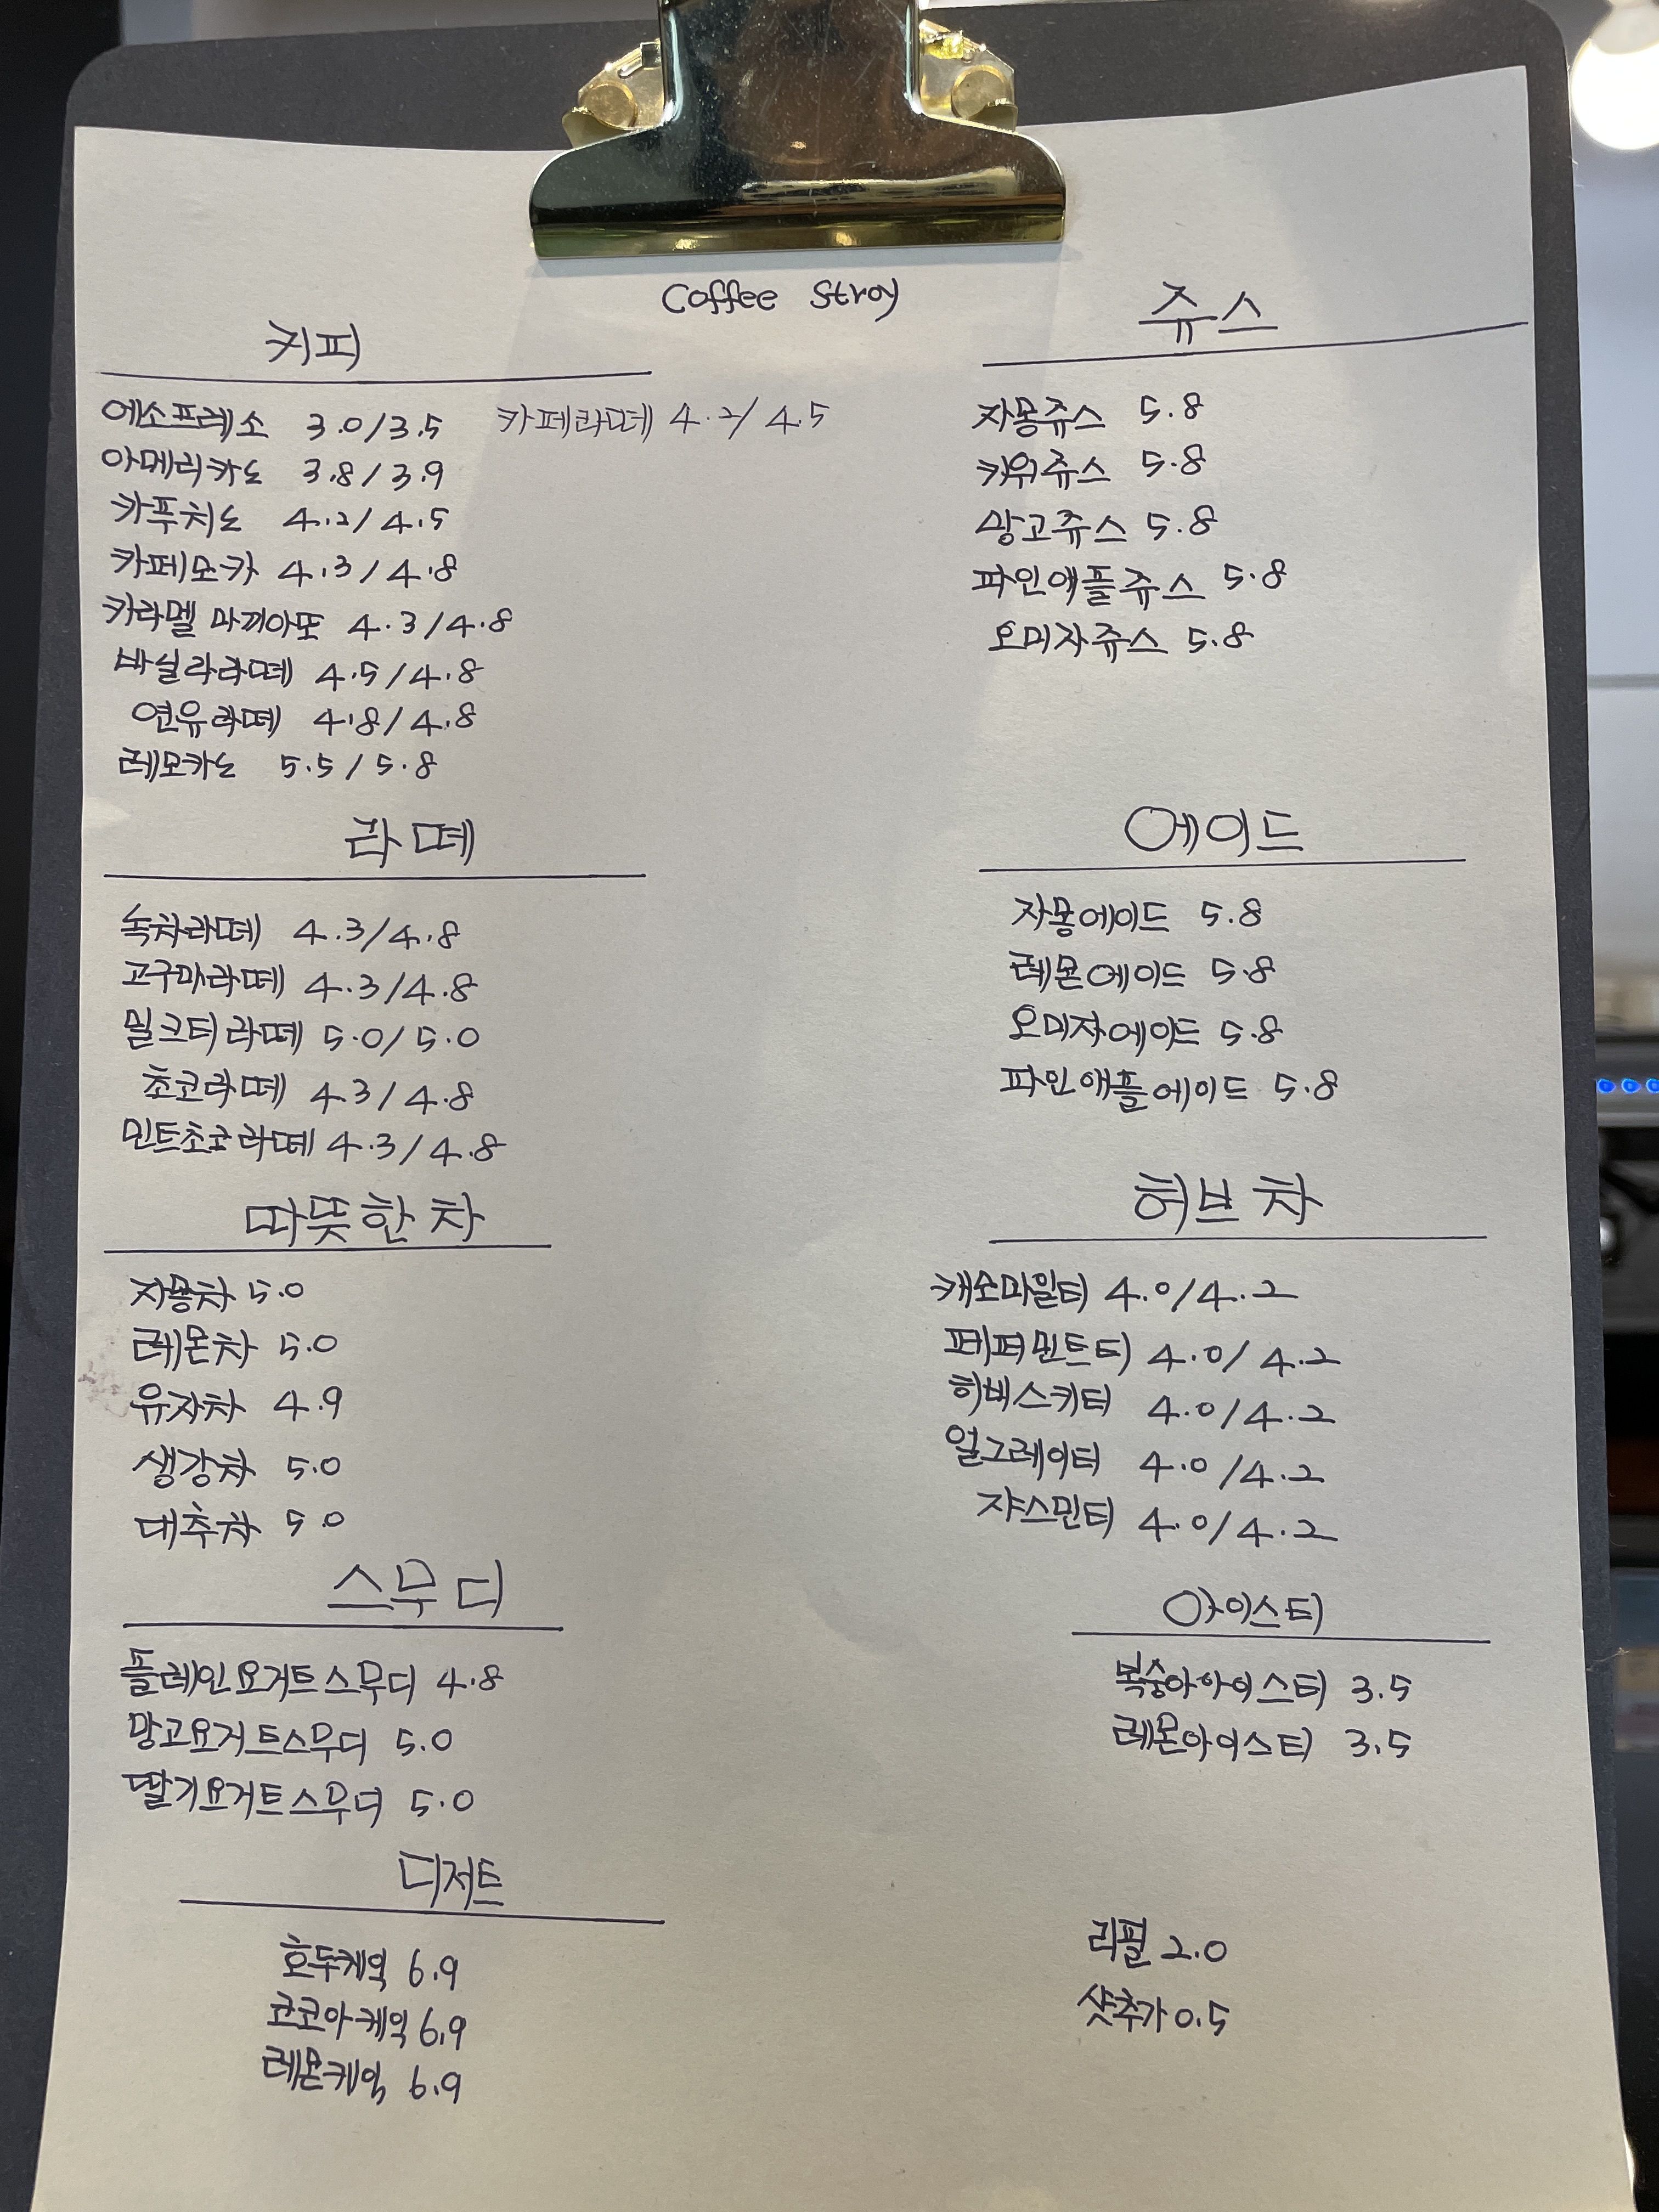 Coffee Stroy
커피
에소프레소 3.0/3.5 카페라떼 4.2/4.5
아메리카노 3.8/3.9
카푸치노 4.2/4.5
카페모카 4.3/4.8
카라멜 마끼아또 4.3/4.8
바닐라라떼 4.5/4.8
연유라떼 4.8/4.8
레모카노 5.5/5.8
라떼
녹차라떼 4.3/4.8
고구마라떼 4.3/4.8
밀크티라떼 5.0/5.0
초코라떼 4.3/4.8
민트초코라떼 4.3/4.8
따뜻한 차
자몽차 5.0
레몬차 5.0
유자차 4.9
생강차 5.0
대추차 5.0
스무디
플레인요거트스무디 4.8
망고요거트스무디 5.0
딸기요거트스무디 5.0
디저트
호두케익 6.9
코코아케익 6.9
레몬케익 6.9
쥬스
자몽쥬스 5.8
키위쥬스 5.8
망고쥬스 5.8
파인애플쥬스 5.8
오미자쥬스 5.8
에이드
자몽에이드 5.8
레몬에이드 5.8
오미자에이드 5.8
파인애플에이드 5.8
허브차
캐모마일티 4.0/4.2
페퍼민트티 4.0/4.2
히비스커티 4.0/4.2
얼그레이티 4.0/4.2
쟈스민티 4.0/4.2
아이스티
복숭아아이스티 3.5
레몬아이스티 3.5
리필 2.0
샷추가 0.5